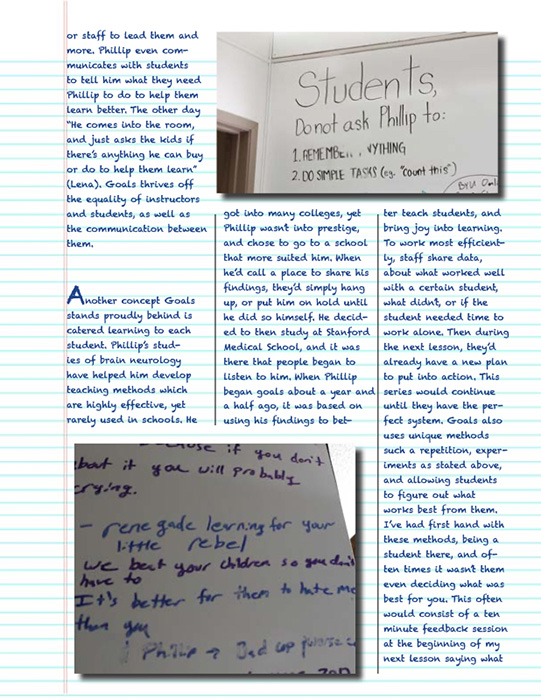 or staff to lead them and
more. Phillip even com-
municates with students
to tell him what they need
Phillip to do to help them
learn better. The other day
"He comes into the room,
and just asks the kids if
there's anything he can buy
or do to help them learn"
(Lena). Goals thrives off
the equality of instructors
and students, as well as
the communication between
them.
Another concept Goals
stands proudly behind is
catered learning to each
student. Phillip's stud-
ies of brain neurology
have helped him develop
teaching methods which
are highly effective, yet
rarely used in schools. He
Students,
Do not ask Phillip to:
1. REMEMBE... NYTHING
2. DO SIMPLE TASKS (eg. "count this")
BYU
got into many colleges, yet
Phillip wasn't into prestige,
and chose to go to a school
that more suited him. When
he'd call a place to share his
findings, they'd simply hang
up, or put him on hold until
he did so himself. He decid-
ed to then study at Stanford
Medical School, and it was
there that people began to
listen to him. When Phillip
began goals about a year and
a half ago, it was based on
using his findings to bet-
ter teach students, and
bring joy into learning.
To work most efficient-
ly, staff share data,
about what worked well
with a certain student,
what didn't, or if the
student needed time to
work alone. Then during
the next lesson, they'd
already have a new plan
to put into action. This
series would continue
until they have the per-
fect system. Goals also
uses unique methods
such a repetition, exper-
iments as stated above,
and allowing students
to figure out what
works best from them.
I've had first hand with
these methods, being a
student there, and of-
ten times it wasn't them
even deciding what was
best for you. This often
would consist of a ten
minute feedback session
at the beginning of my
next lesson saying what
if you don't
about it you will probably
crying.
- renegade learning for your
little rebel
we beat your children so you don't
have to
It's better for them to hate me
than you
Phillip →